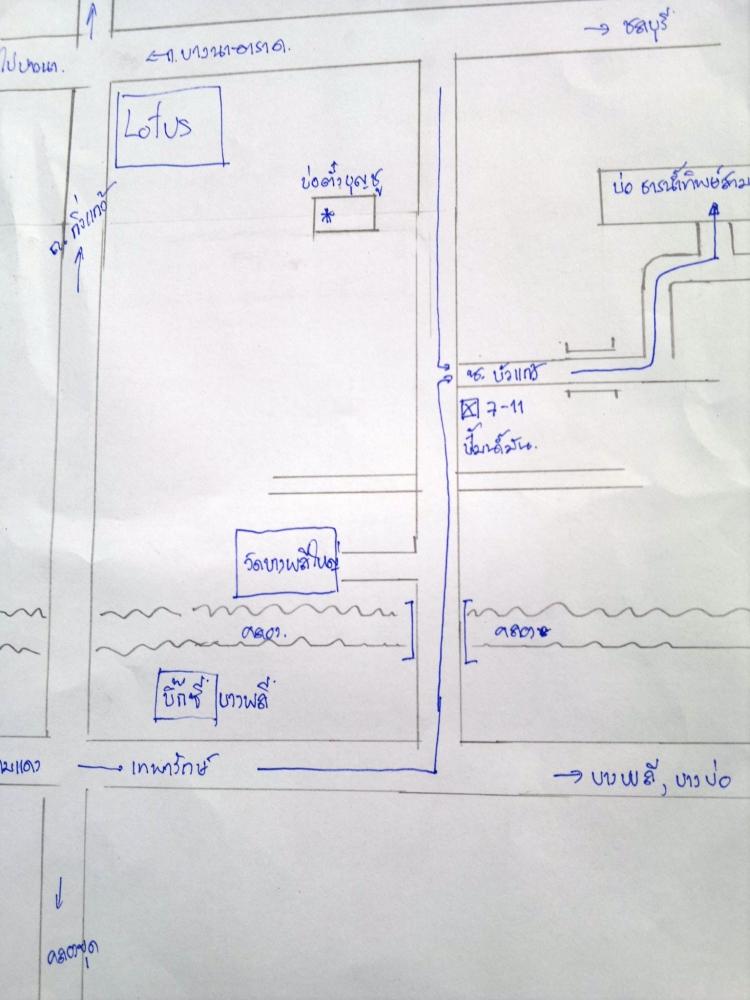 → ชลบุรี
← ถ.บางนา-ตราด.
ไปบางนา.
Lotus
บ่อตั๋วบุญชู
บ่อ ธารน้ำทิพย์
ถ. กิ่งแก้ว
ซ. บัวแก้ว
7-11
ปั้มน้ำมัน.
วัดบางพลีใหญ่
คลอง.
คลอง
บิ๊กซี บางพลี
→ เทพารักษ์
→ บางพลี, บางบ่อ